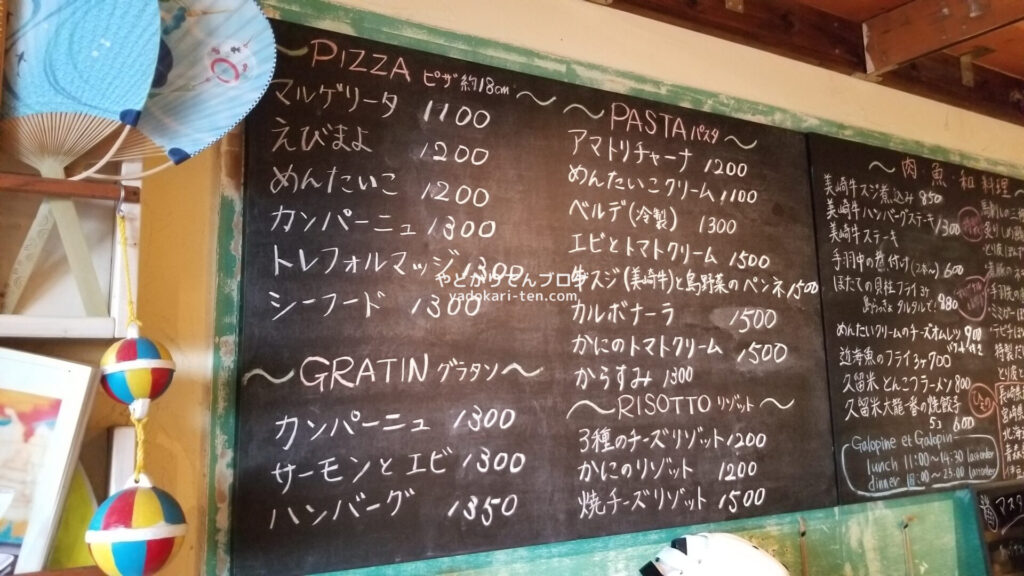 ～PIZZA ピザ 約18cm～
マルゲリータ 1100
えびまよ 1200
めんたいこ 1200
カンパーニュ 1300
トレフォルマッジ 1300
シーフード 1300
～GRATIN グラタン～
カンパーニュ 1300
サーモンとエビ 1300
ハンバーグ 1350
～PASTA パスタ～
アマトリチャーナ 1200
めんたいこクリーム 1100
ベルデ(冷製) 1300
エビとトマトクリーム 1500
牛スジ(美崎牛)と島野菜のペンネ 1500
カルボナーラ 1500
かにのトマトクリーム 1500
からすみ 1300
～RISOTTO リゾット～
3種のチーズリゾット 1200
かにのリゾット 1200
焼チーズリゾット 1500
～肉 魚 和 料理～
美崎牛スジ煮込み 850
美崎牛ハンバーグステーキ 1300
美崎牛ステーキ
手羽中の煮付け(2本) 600
ほたての貝柱フライ 3ヶ
タルタルして 980
めんたいクリームのチーズオムレツ 900
近海魚のフライ 3ヶ 700
久留米とんこつラーメン 800
久留米大龍一番の焼餃子
5コ 600
Galopine et Galopin
lunch 11:00~14:30 lastorder
dinner 18:00~23:00 lastorder
やどかりてんブログ
yadokari-ten.com